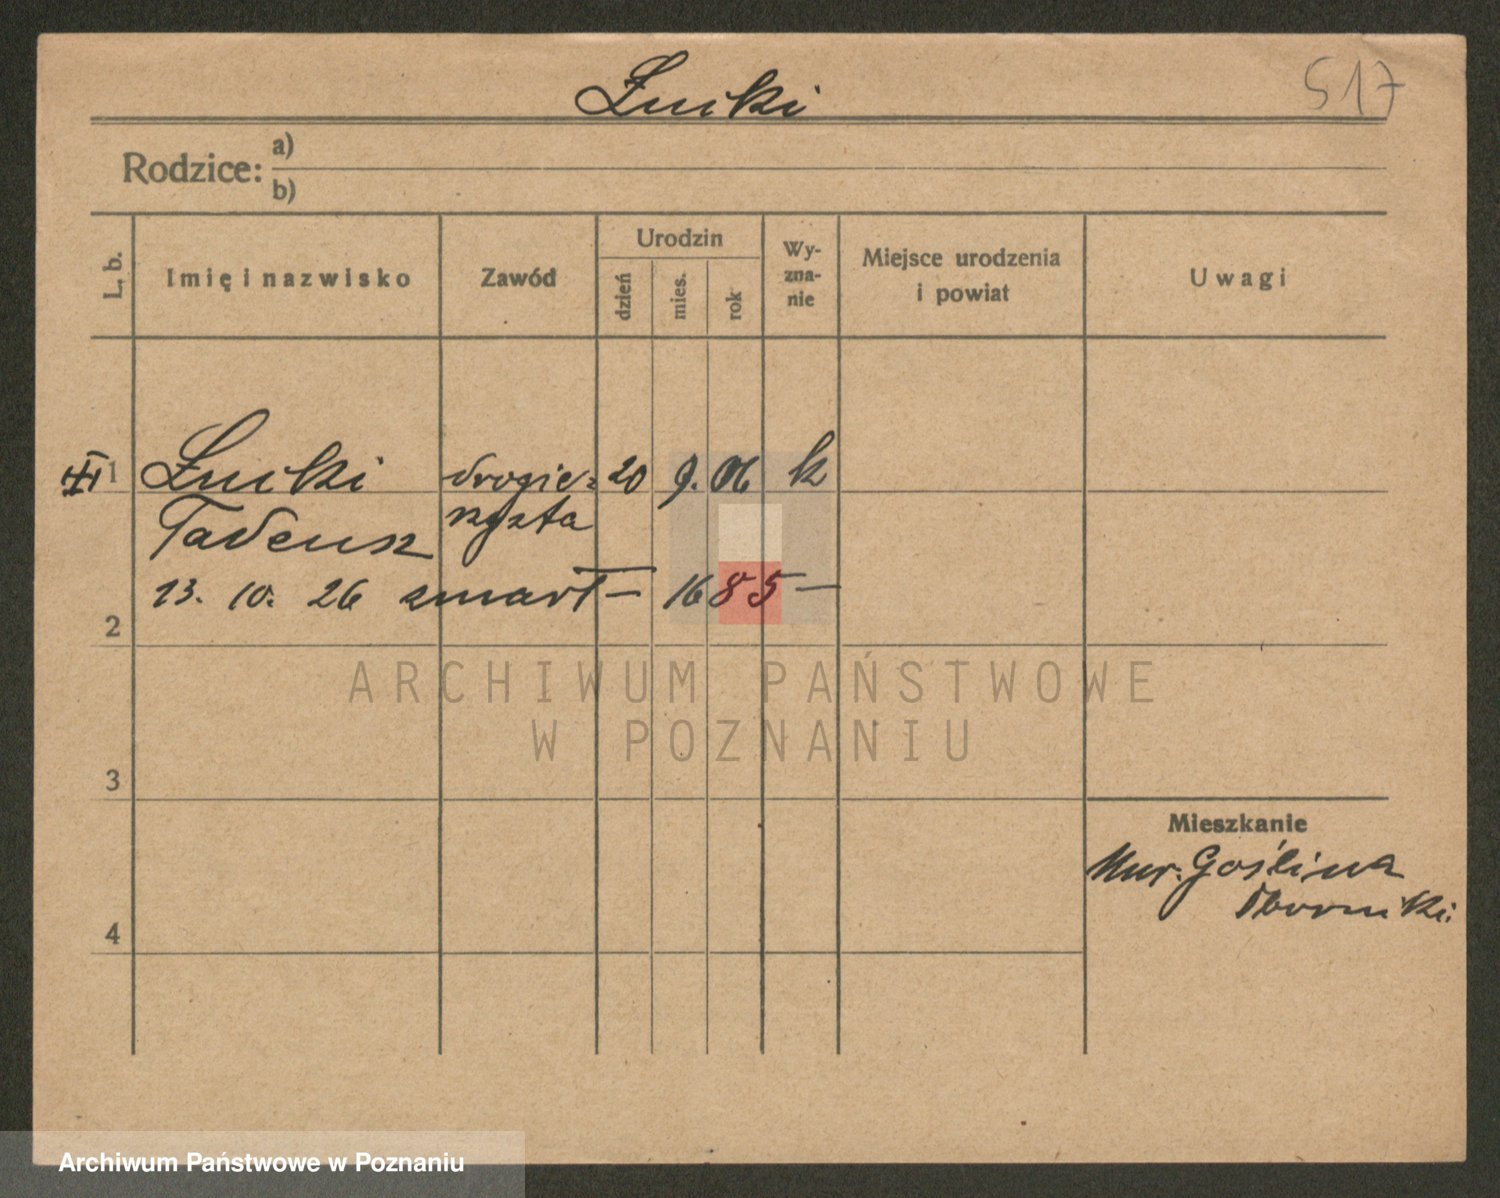 Żucki
517
Rodzice: a)
b)
L. b.
Imię i nazwisko
Zawód
Urodzin
dzień
mies.
rok
Wy-
zna-
nie
Miejsce urodzenia
i powiat
Uwagi
1 drogie= 20 9. 06 k
Tadeusz rzysta
13. 10. 26 zmarł — 1685 —
2
3
4
Mieszkanie
Mur. Goślina
Oborniki
ARCHIWUM PAŃSTWOWE
W POZNANIU
Archiwum Państwowe w Poznaniu